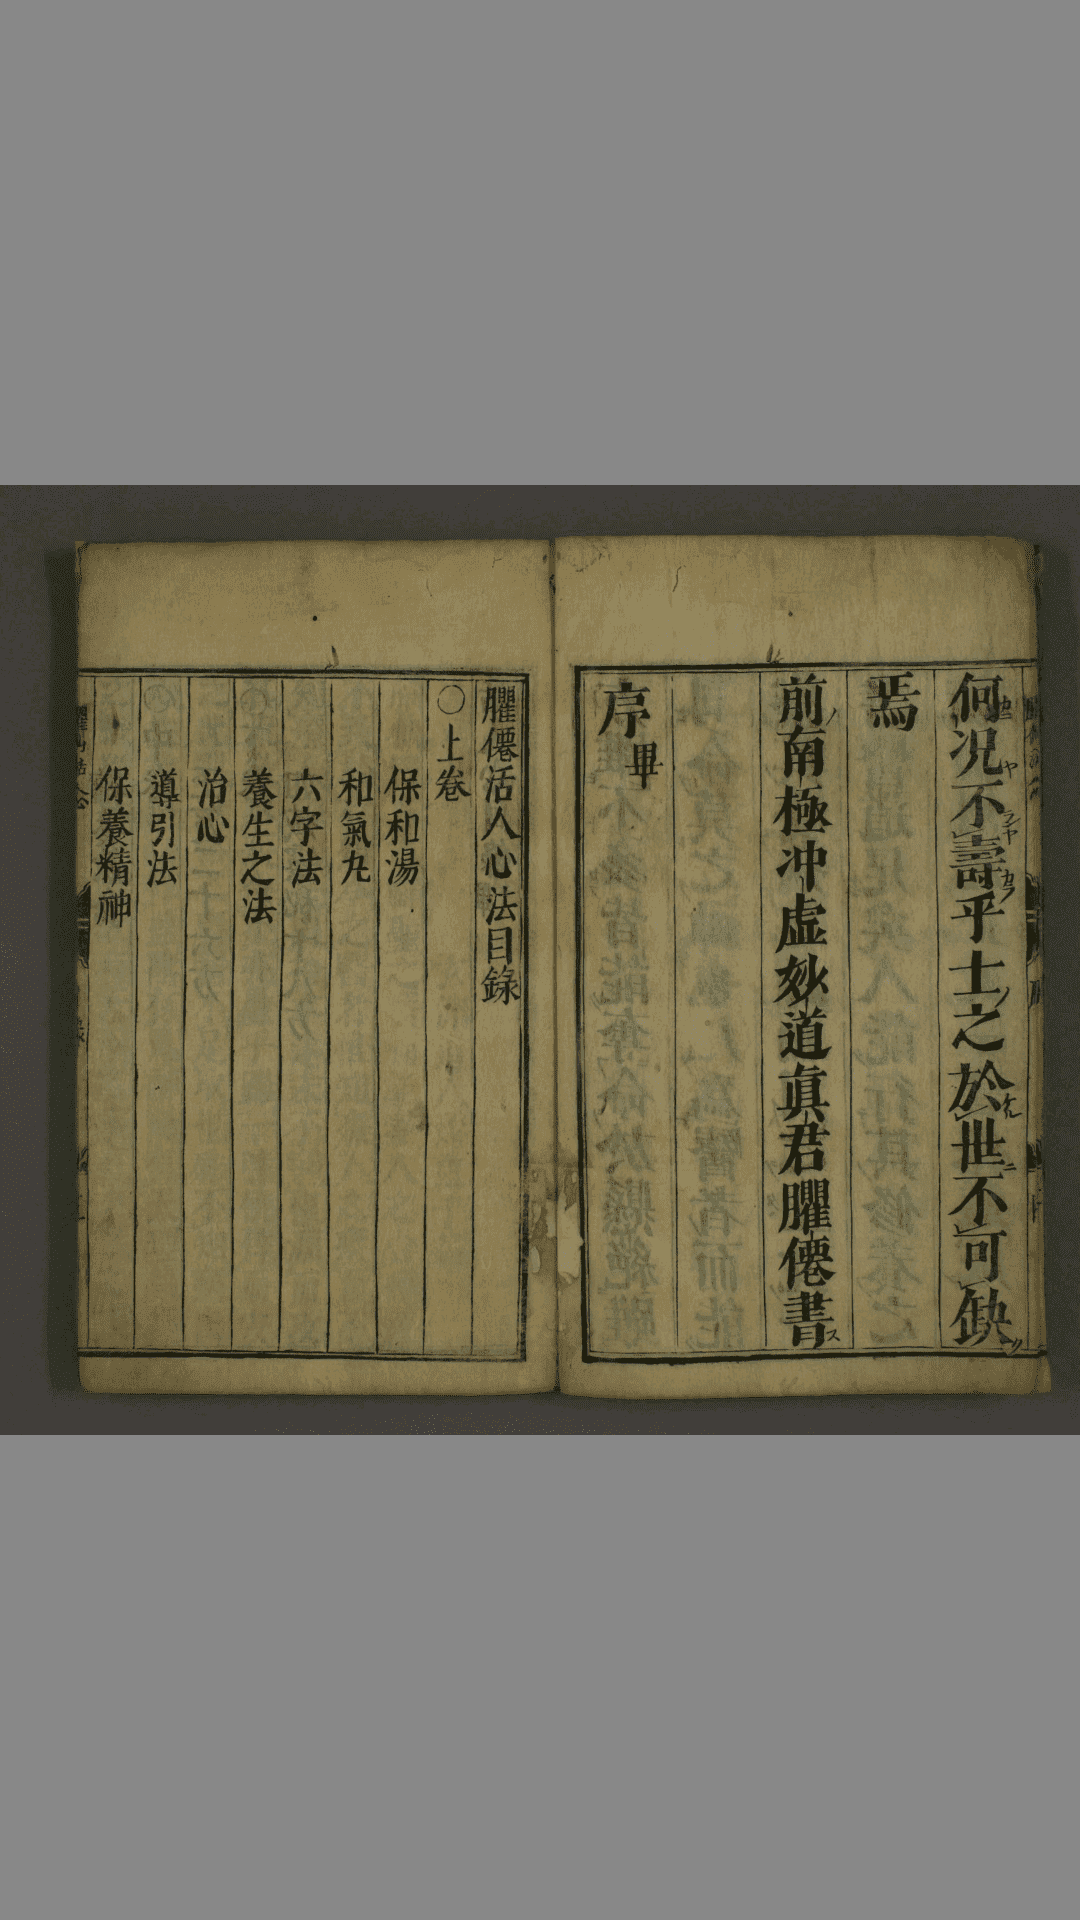 何況不壽乎士之於世不可缺
焉
前南極冲虚妙道眞君臞僊書
序畢
臞僊活人心法目錄
〇上卷
保和湯
和氣丸
六字法
養生之法
治心
導引法
保養精神